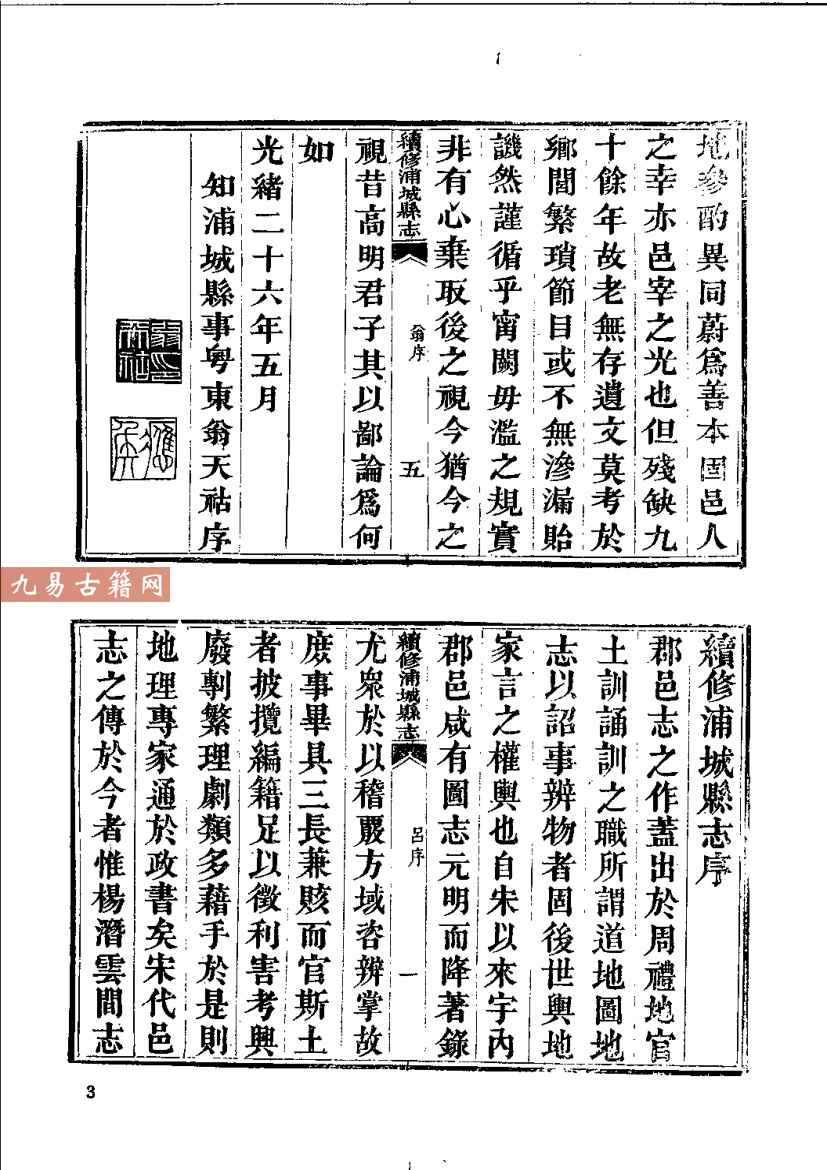 地參酌異同蔚爲善本固邑人
之幸亦邑宰之光也但殘缺九
十餘年故老無存遺文莫考於
鄉閭繁瑣節目或不無滲漏貽
譏然謹循乎甯闕毋濫之規實
非有心棄取後之視今猶今之
續修浦城縣志
翁序
五
視昔高明君子其以鄙論爲何
如
光緒二十六年五月
知浦城縣事粵東翁天祜序
九易古籍网
續修浦城縣志序
郡邑志之作蓋出於周禮地官
土訓誦訓之職所謂道地圖地
志以詔事辨物者固後世輿地
家言之權輿也自宋以來宇內
郡邑咸有圖志元明而降著錄
續修浦城縣志
呂序
一
尤衆於以稽覈方域咨辨掌故
庶事畢具三長兼賅而官斯土
者披攬編籍足以徵利害考興
廢剸繁理劇類多藉手於是則
地理專家通於政書矣宋代邑
志之傳於今者惟楊潛雲間志
3